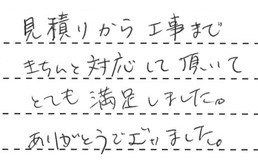 見積りから工事まで
きちんと対応して頂いて
とても満足しました。
ありがとうでございました。